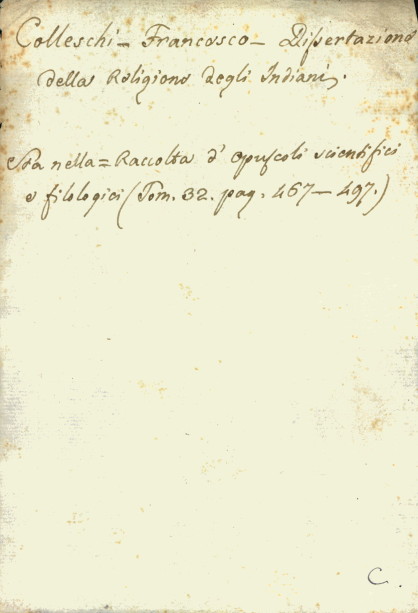 Colleschi - Francesco - Dissertazione
della Religione degli Indiani.
Sta nella = Raccolta d' opuscoli scientifici
e filologici (Tom. 32. pag. 467 - 497.)
C.